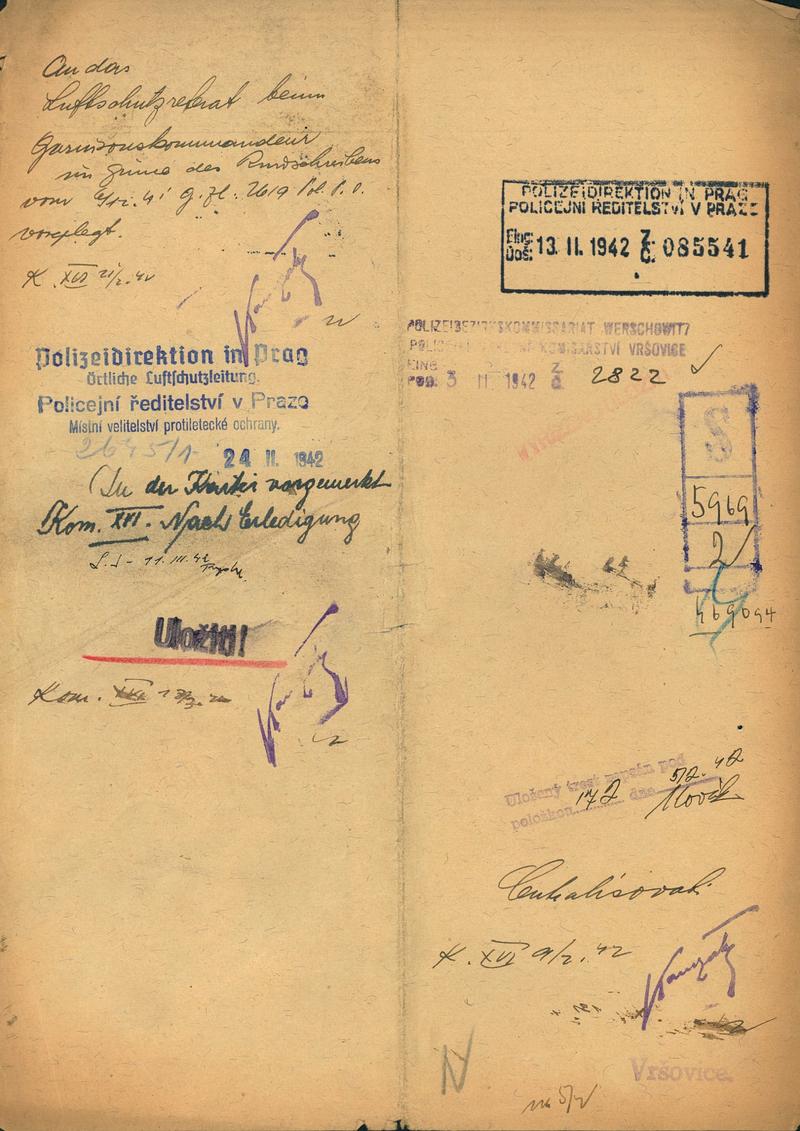 An das
Luftschutzreferat beim
Garnisonskommandeur
im Sinne des Rundschreibens
vom g.Zl. 2619
vorgelegt.
K. XVI 21/2. 42
Polizeidirektion in Prag
Örtliche Luftschutzleitung.
Policejní ředitelství v Praze
Místní velitelství protiletecké ochrany.
2645/1
24 II. 1942
In der Kartei vorgemerkt
Kom. XVI. Nach Erledigung
11. III. 42
Uložiti!
Kom. XVI
POLIZEIDIREKTION IN PRAG
POLICEJNÍ ŘEDITELSTVÍ V PRAZE
Eing.
Doš. 13. II. 1942 Z. Č. 085541
POLIZEIBEZIRKSKOMMISSARIAT WERSCHOWITZ
KOMISAŘSTVÍ VRŠOVICE
EING.
POD. 3 II 1942 Z. Č. 2822
S
5969
2
Uložený trest zapsán pod
položkou 172 dne 5/2. 42
Novák
Centralisovati
K. XVI 9/2. 42
N
Vršovice.